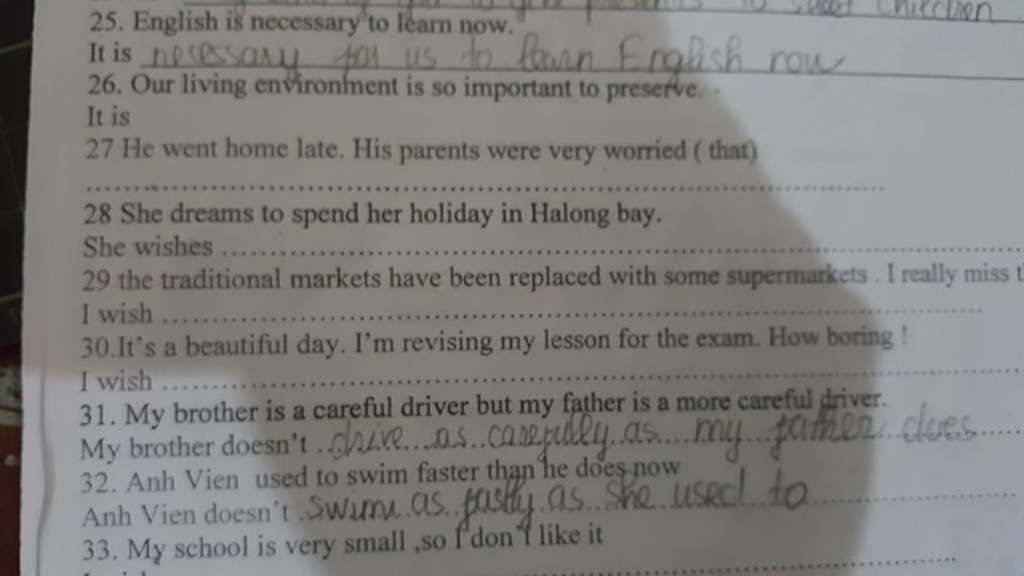 to give presents to street children
25. English is necessary to learn now.
It is necessary for us to learn English now
26. Our living environment is so important to preserve.
It is
27 He went home late. His parents were very worried ( that)
28 She dreams to spend her holiday in Halong bay.
She wishes
29 the traditional markets have been replaced with some supermarkets . I really miss
I wish
30.It's a beautiful day. I'm revising my lesson for the exam. How boring !
I wish
31. My brother is a careful driver but my father is a more careful driver.
My brother doesn't drive as carefully as my father does
32. Anh Vien used to swim faster than he does now
Anh Vien doesn't swim as fastly as she used to
33. My school is very small ,so I don't like it